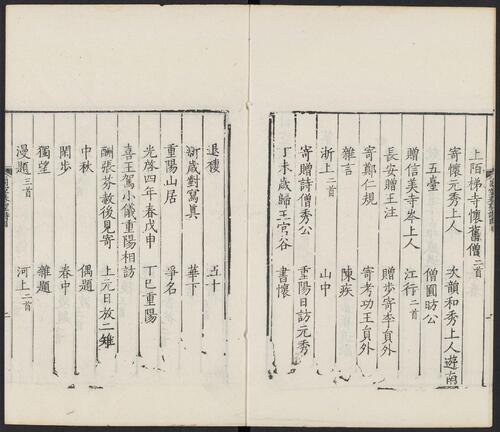 上陌梯寺懷舊僧二首
寄懷元秀上人　次韻和秀上人遊南
五臺　僧圓昉公
贈信美寺岑上人　江行二首
長安贈王注　贈步寄李員外
寄鄭仁規　寄考功王員外
雜言　陳疾
浙上二首　山中
寄贈詩僧秀公　重陽日訪元秀
丁未歲歸王官谷　書懷
退棲　五十
新歲對寫真　華下
重陽山居　爭名
光啓四年春戊申　丁巳重陽
喜王駕小儀重陽相訪
酬張芬赦後見寄　上元日放二雉
中秋　偶題
閑步　春中
獨望　雜題
漫題三首　河上二首